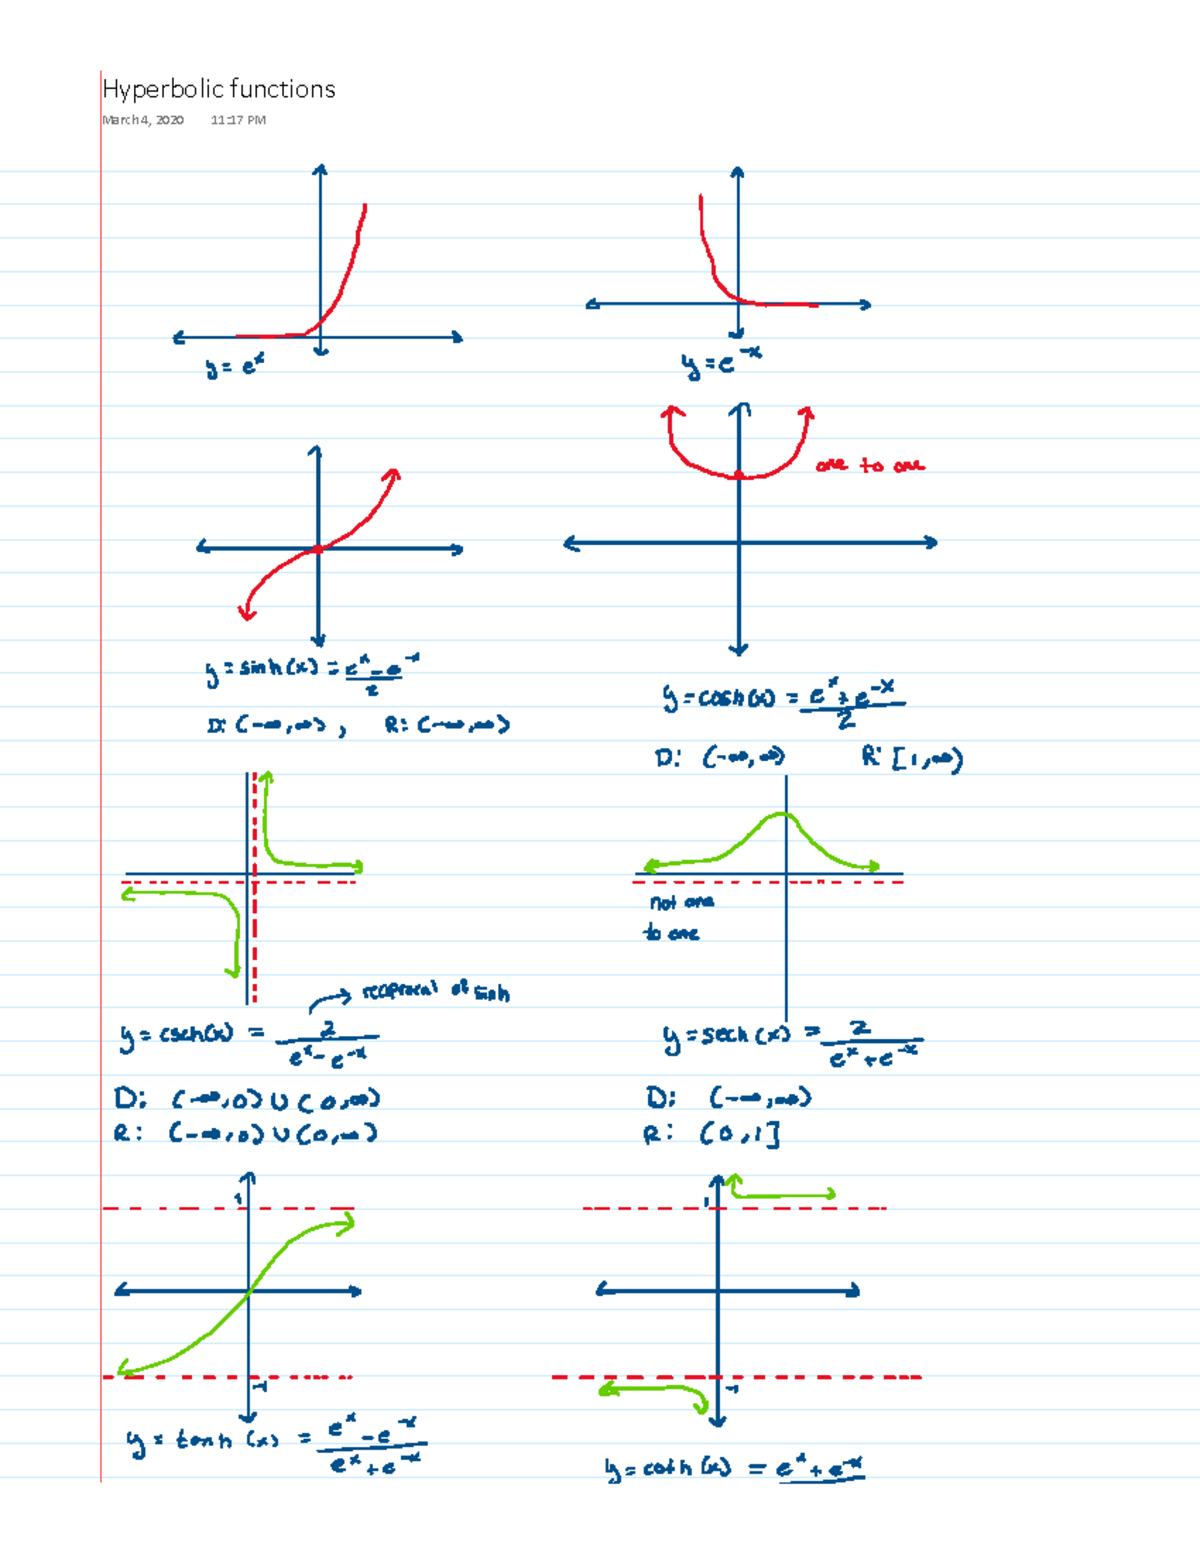 Hyperbolic functions
March 4, 2020 11:17 PM
y = e^x
y = e^-x
one to one
y = sinh(x) = e^x - e^-x / 2
D: (-∞,∞), R: (-∞,∞)
y = cosh(x) = e^x + e^-x / 2
D: (-∞,∞) R: [1,∞)
not one
to one
reciprocal of sinh
y = csch(x) = 2 / e^x - e^-x
D: (-∞,0) ∪ (0,∞)
R: (-∞,0) ∪ (0,∞)
y = sech(x) = 2 / e^x + e^-x
D: (-∞,∞)
R: (0,1]
1
-1
y = tanh(x) = e^x - e^-x / e^x + e^-x
1
-1
y = coth(x) = e^x + e^-x